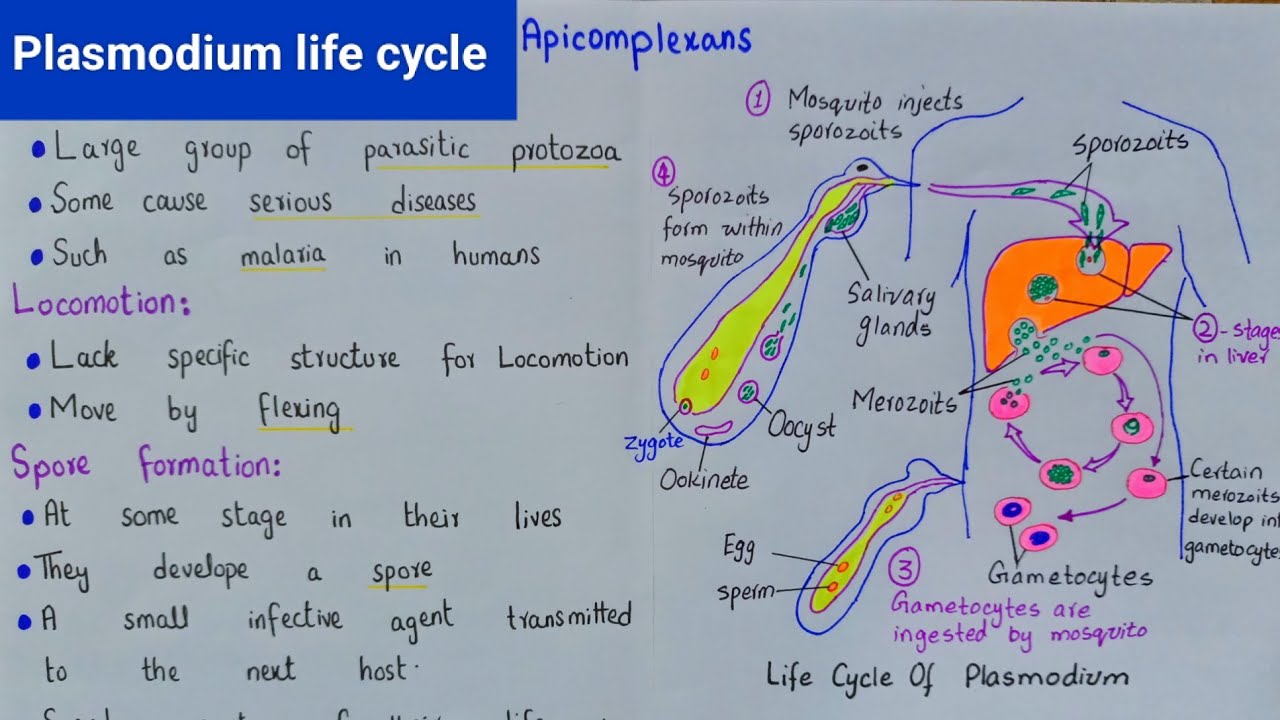 Plasmodium life cycle
Apicomplexans
Large group of parasitic protozoa
Some cause serious diseases
Such as malaria in humans
Locomotion:
Lack specific structure for Locomotion
Move by flexing
Spore formation:
At some stage in their lives
They develope a spore
A small infective agent transmitted
to the next host.
1 Mosquito injects
sporozoits
sporozoits
4
sporozoits
form within
mosquito
Salivary
glands
2 - stage
in liver
Merozoits
Oocyst
Zygote
Ookinete
Certain
merozoits
develop
gametocyte
Gametocytes
Egg
sperm
3
Gametocytes are
ingested by mosquito
Life Cycle Of Plasmodium